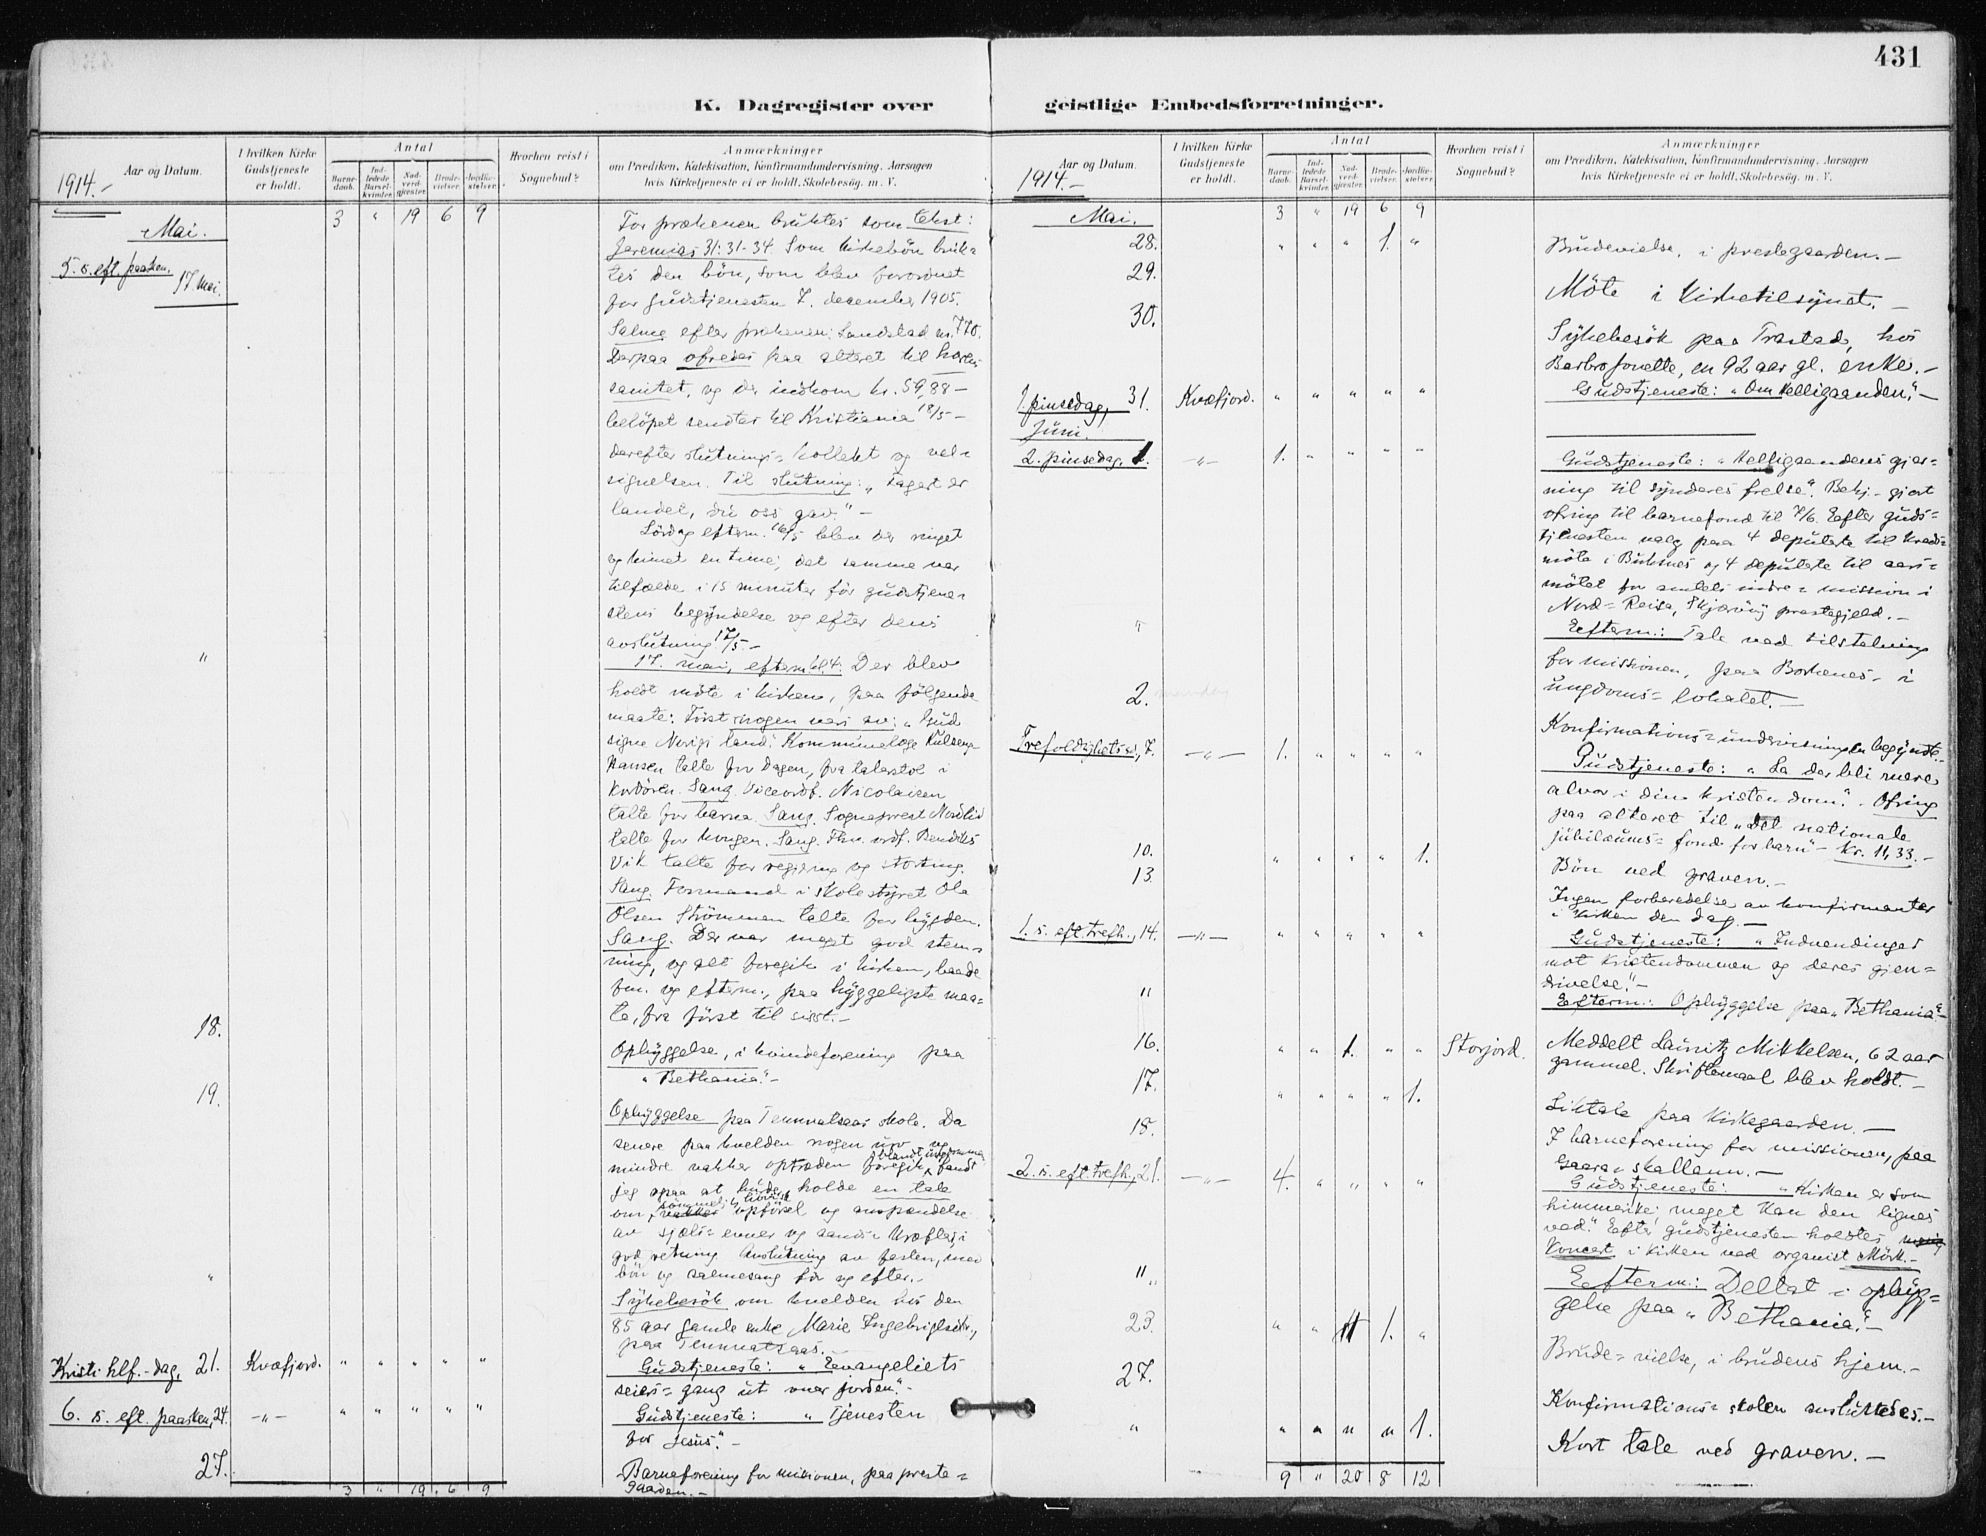 431
K. Dagregister over
Aar og Datum.
I hvilken Kirke
Gudstjeneste
er holdt.
Antal
Barne-
daab.
Ind-
ledede
Barsel-
kvinder.
Nad-
verd-
gjester.
Brude-
vielser.
Jordfæ-
stelser.
Hvorhen reist i
Sognebud?
Anmærkninger
om Prædiken, Katekisation, Konfirmandundervisning, Aarsagen
hvis Kirketjeneste ei er holdt, Skolebesøg. m. V.
1914.-
Mai.
3 " 19 6 9
5. s. eft. paasken.
17. mai.
For prækenen bruktes som tekst:
Jeremias 31: 31-34. Som kirkebön bruk-
tes den bön, som blev forordnet
for gudstjenesten 7. december 1905.
Salme efter prækenen: Landstad nr. 770.
Derpaa ofredes paa alteret til
sanitet, og der indkom kr. 59,88 -
belöpet sendtes til Kristiania 18/5 -
derefter slutnings-kollekt og vel-
signelsen. Til slutning: "Fagert er
landet, du oss gav." -
Lördag efterm. 16/5 blev der ringet
og kimet en time; det samme var
tilfælde i 15 minuter för gudstjene-
stens begyndelse og efter dens
avslutning 17/5. -
" 17. mai, efterm. kl. 4: Der blev
holdt möte i kirken, paa fölgende
maate: Först nogen vers av: "Gud
signe Norigs land." Kommunelæge Kulseng-
Hansen talte for dagen, fra talerstol i
kordören. Sang. Viceordf. Nicolaisen
talte for barna. Sang. Sogneprest Nordlid
talte for kongen. Sang. Fhv. ordf. Bendiks
Vik talte for regjering og storting.
Sang. Formand i skolestyret Ola
Olsen Strömmen talte for bygden.
Sang. Der var meget god stem-
ning, og alt foregik i kirken, baade
fm. og efterm., paa hyggeligste maa-
te, fra först til sisst. -
18.
Opbyggelse, i kvindeforening paa
"Bethania". -
19.
Opbyggelse paa skole. Da
senere paa kvelden nogen uro og
mindre vakker optræden foregik blandt ungdommen, fandt
jeg at burde holde en tale
om opförsel og anspændelse
av sjæls-evner og aands-kræfter, i
god retning. Avslutning av festen, med
bön og salmesang för og efter. -
" Sykebesök om kvelden hos den
85 aar gamle enke Marie Ingebrigtsen,
paa
Kristi hlf.-dag, 21. Kvæfjord. " " " " " Gudstjeneste: "Evangeliets
seiers-gang ut over jorden." -
6. s. eft. paasken, 24. -"- " " " " " Gudstjeneste: "Tjenesten
for Jesus." -
27. Barneforening for missionen, paa preste-
gaarden. -
3 " 19. 6 9
geistlige Embedsforretninger.
Aar og Datum.
I hvilken Kirke
Gudstjeneste
er holdt.
Antal
Barne-
daab.
Ind-
ledede
Barsel-
kvinder.
Nad-
verd-
gjester.
Brude-
vielser.
Jordfæ-
stelser.
Hvorhen reist i
Sognebud?
Anmærkninger
om Prædiken, Katekisation, Konfirmandundervisning, Aarsagen
hvis Kirketjeneste ei er holdt, Skolebesøg. m. V.
1914.-
Mai. 3 " 19 6 9
28. " " " 1. " Brudevielse, i prestegaarden. -
29. Möte i kirketilsynet. -
30. Sykebesök paa Trastad, hos
Barbro Jonette, en 92 aar gl. enke. -
1. pinsedag, 31. Kvæfjord. " " " " " Gudstjeneste: "Om Helligaanden," -
Juni.
2. pinsedag, 1. -"- 1. " " " " Gudstjeneste: "Helligaandens gjer-
ning til synderes frelse". Bekj.-gjort
ofring til barnefond til 7/6. Efter guds-
tjenesten valg paa 4 deputerte til kreds-
möte i Buknes og 4 deputerte til aars-
mötet for amtets indre-mission i
Nord-Reisa, Skjærvöy prestegjeld. -
" Efterm.: Tale ved tilstelning
for missionen, paa Borkenes - i
ungdoms-lokalet. -
2. mandag
Konfirmations-undervisningen begyndte.
Trefoldighets s., 7. -"- 1. " " " " Gudstjeneste: "La der bli mere
alvor i din kristendom." - Ofring
paa alteret til "det nationale
jubilæums-fond for barn" - Kr. 11,33. -
10. " " " " 1. Bön ved graven. -
13. Ingen forberedelse av konfirmanter
i kirken den dag. -
1. s. eft. trefh., 14. -"- " " " " " Gudstjeneste: "Indvendinger
mot kristendommen og deres gjen-
drivelse." -
" Efterm.: Opbyggelse paa "Bethania". -
16. " " 1. " " Storjord. Meddelt Lainitz Mikkelsen, 62 aar
gammel. Skriftemaal blev holdt. -
17. " " " " 1. Liktale paa kirkegaarden. -
18. I barneforening for missionen, paa
Gaara-skallann. -
2. s. eft. trefh., 21. -"- 4. " " " " Gudstjeneste: "Kirken er som
himmerike: meget kan den lignes
ved." Efter gudstjenesten holdtes
Koncert i kirken ved organist Mörk. -
" Efterm.: Deltat i opbyg-
gelse paa "Bethania". -
23. " " " 1. " Brude-vielse, i brudens hjem. -
27. Konfirmations-skolen avsluttedes. -
" " " " " 1. Kort tale ved graven. -
9 " 20 8 12